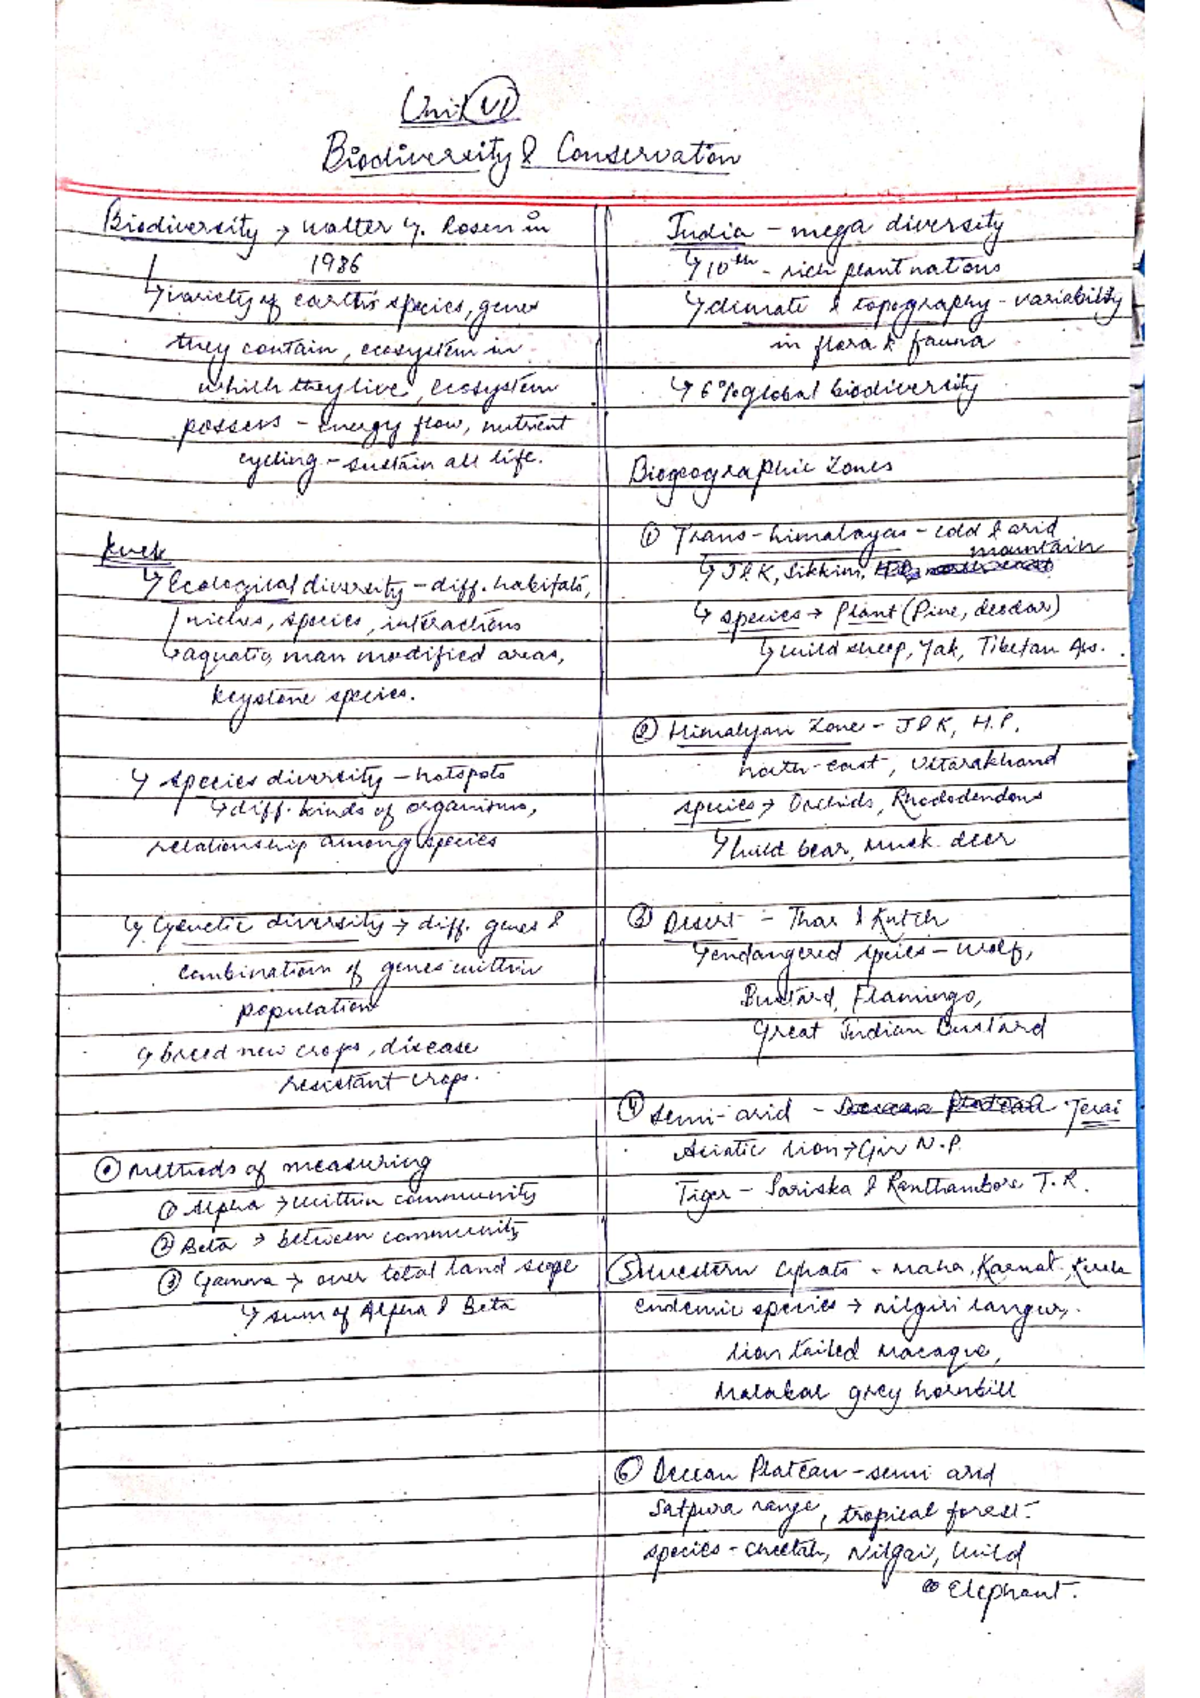 Unit VI
Biodiversity & Conservation
Biodiversity → Walter G. Rosen in
1986
↳ variety of earth's species, genes
they contain, ecosystem in
which they live, ecosystem
possess - energy flow, nutrient
cycling - sustain all life.
↳ Ecological diversity - diff. habitats,
niches, species, interactions
↳ aquatic, man modified areas,
keystone species.
↳ Species diversity - hotspots
↳ diff. kinds of organisms,
relationship among species
↳ Genetic diversity → diff. genes &
combinations of genes within
population
↳ breed new crops, disease
resistant crops.
Methods of measuring
① Alpha → within community
② Beta → between community
③ Gamma → over total land scape
↳ sum of Alpha & Beta
India - mega diversity
↳ 10th - rich plant nations
↳ climate & topography - variability
in flora & fauna
↳ 6% global biodiversity
Biogeographic Zones
① Trans-himalayas - cold & arid
mountain
↳ J&K, Sikkim,
↳ species → Plant (Pine, deodar)
↳ wild sheep, Yak, Tibetan Ass.
② Himalyan Zone - J&K, H.P.
north-east, Uttarakhand
species → Orchids, Rhododendons
↳ wild bear, musk deer
③ Desert - Thar & Kutch
↳ endangered species - wolf,
Bustard, Flamingo,
Great Indian Bustard
④ Semi-arid - Terai
Asiatic lion → Gir N.P.
Tiger - Sariska & Ranthambore T.R.
⑤ Western Ghats - Maha, Karnat,
endemic species → nilgiri langur,
lion tailed macaque,
Malabar grey hornbill
⑥ Deccan Plateau - semi arid
Satpura range, tropical forest
species - cheetah, Nilgai, Wild
Elephant.